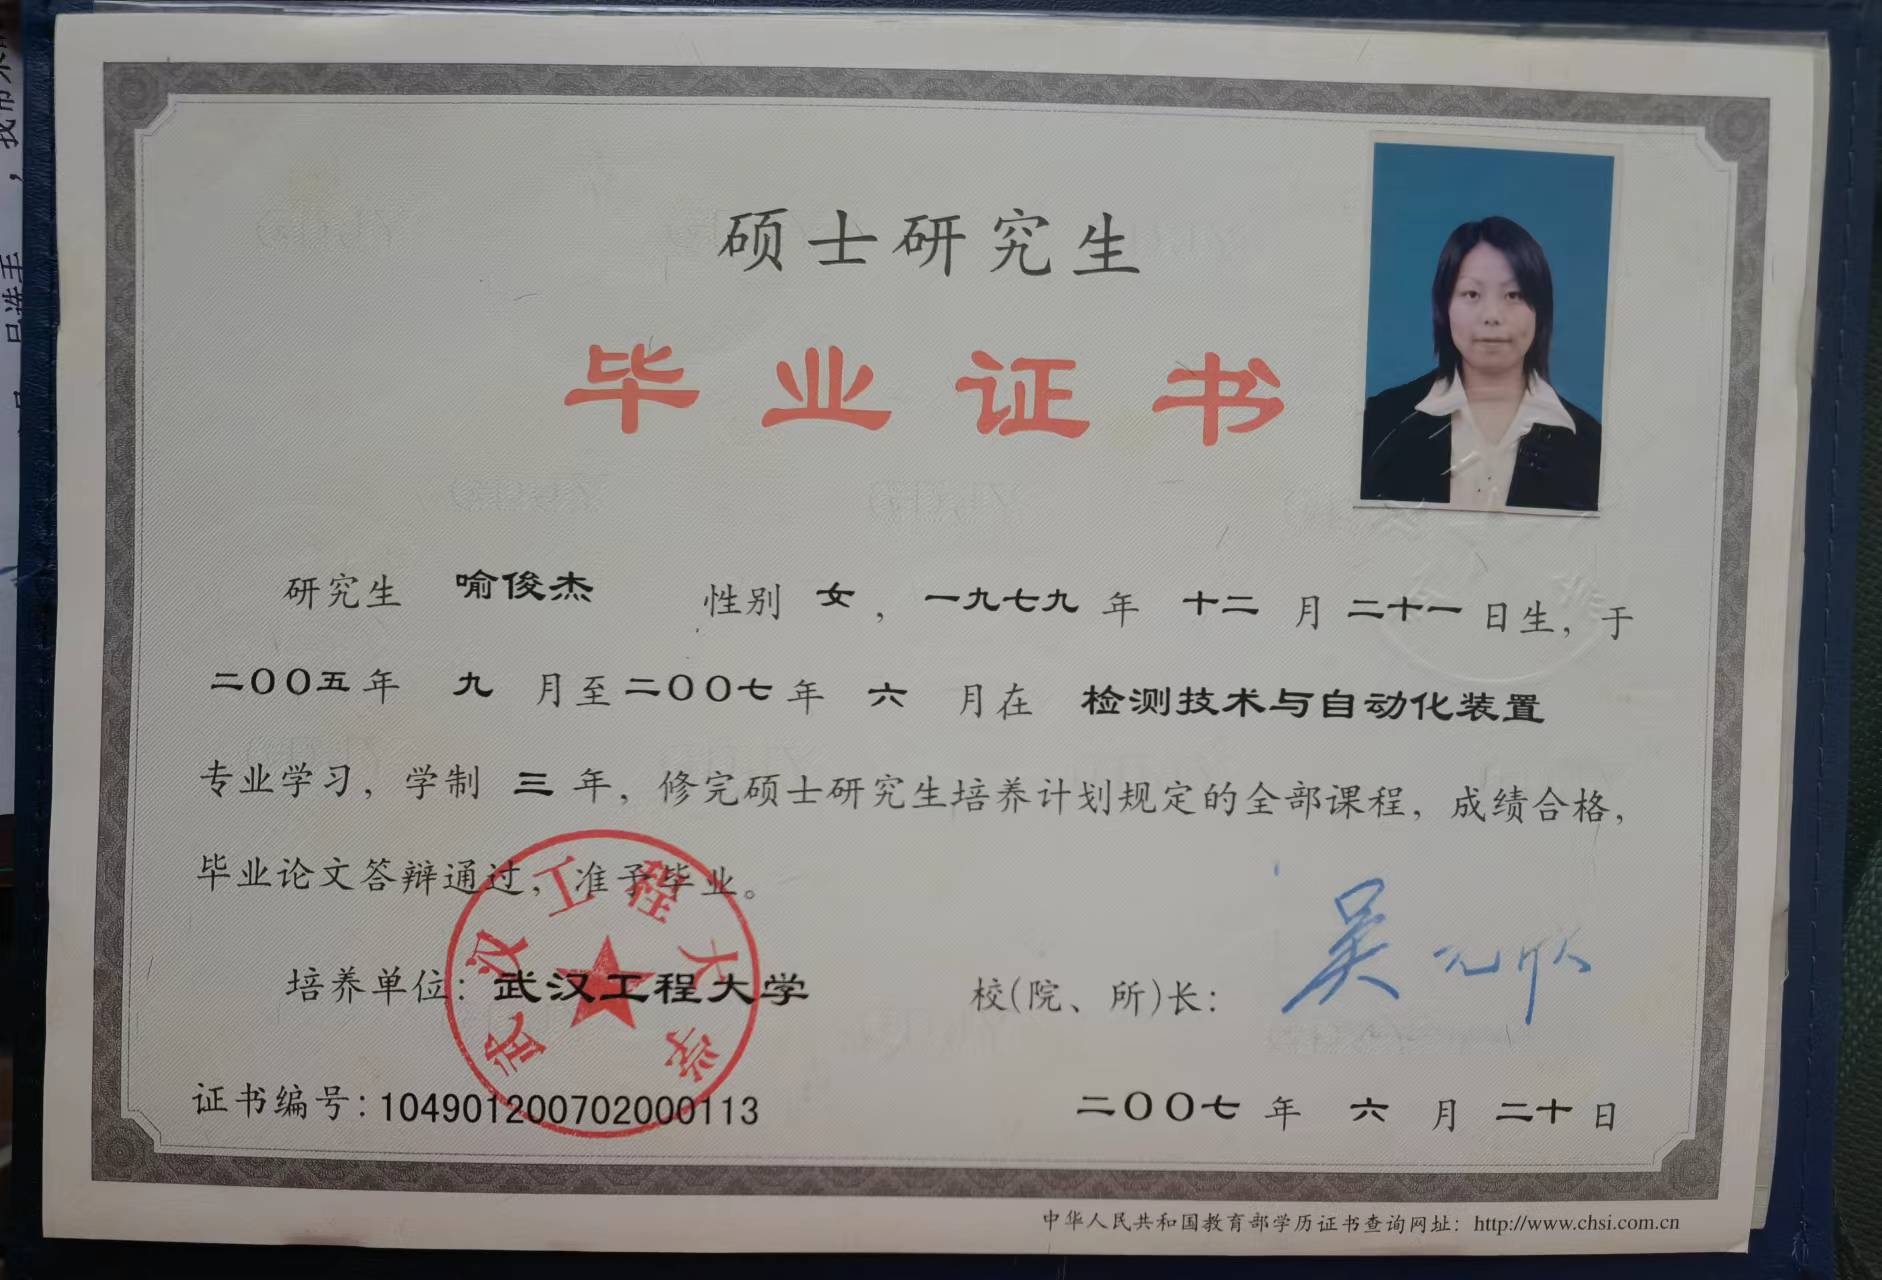 硕士研究生
毕业证书
研究生 喻俊杰 性别 女，一九七九 年 十二 月 二十一 日生，于
二〇〇五年 九 月至二〇〇七年 六 月在 检测技术与自动化装置
专业学习，学制 三 年，修完硕士研究生培养计划规定的全部课程，成绩合格，
毕业论文答辩通过，准予毕业。
培养单位：武汉工程大学
校(院、所)长：吴元欣
武汉工程大学
证书编号：104901200702000113
二〇〇七 年 六 月 二十 日
中华人民共和国教育部学历证书查询网址：http://www.chsi.com.cn